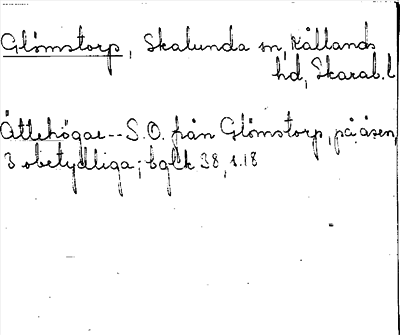 Glömstorp, Skalunda sn, Kållands
hd, Skarab.l
Ättehögar--S.O. från Glömstorp, på åsen,
3 obetydliga; bglk 38, s.18